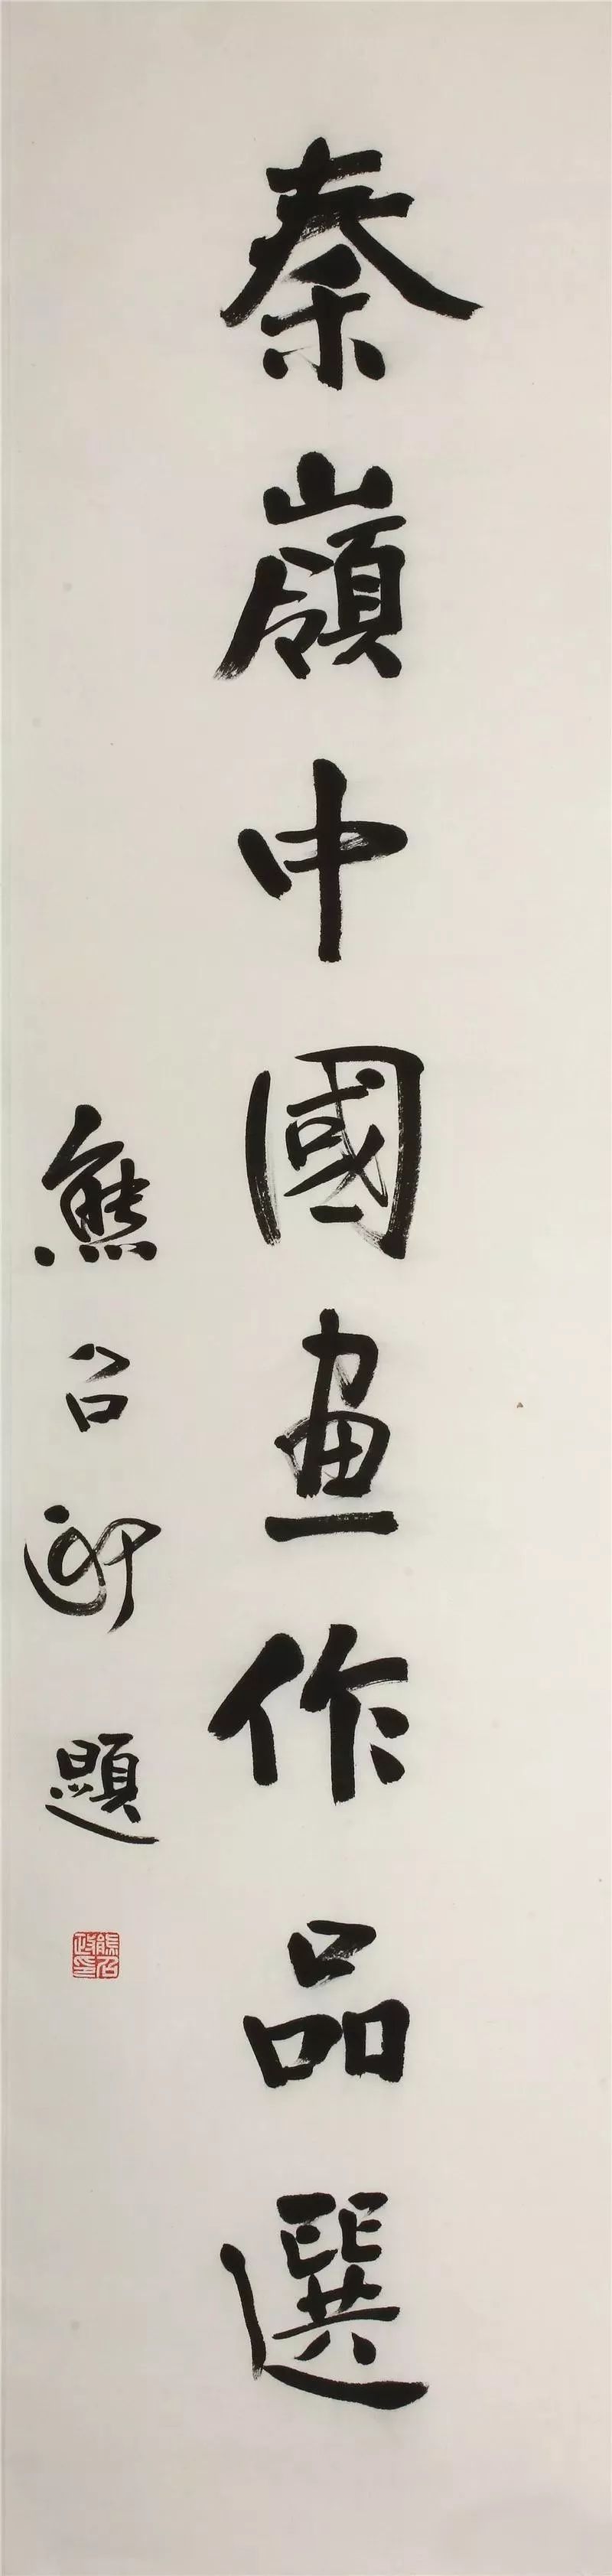 秦嶺中國畫作品選
熊召政題
熊召
政印